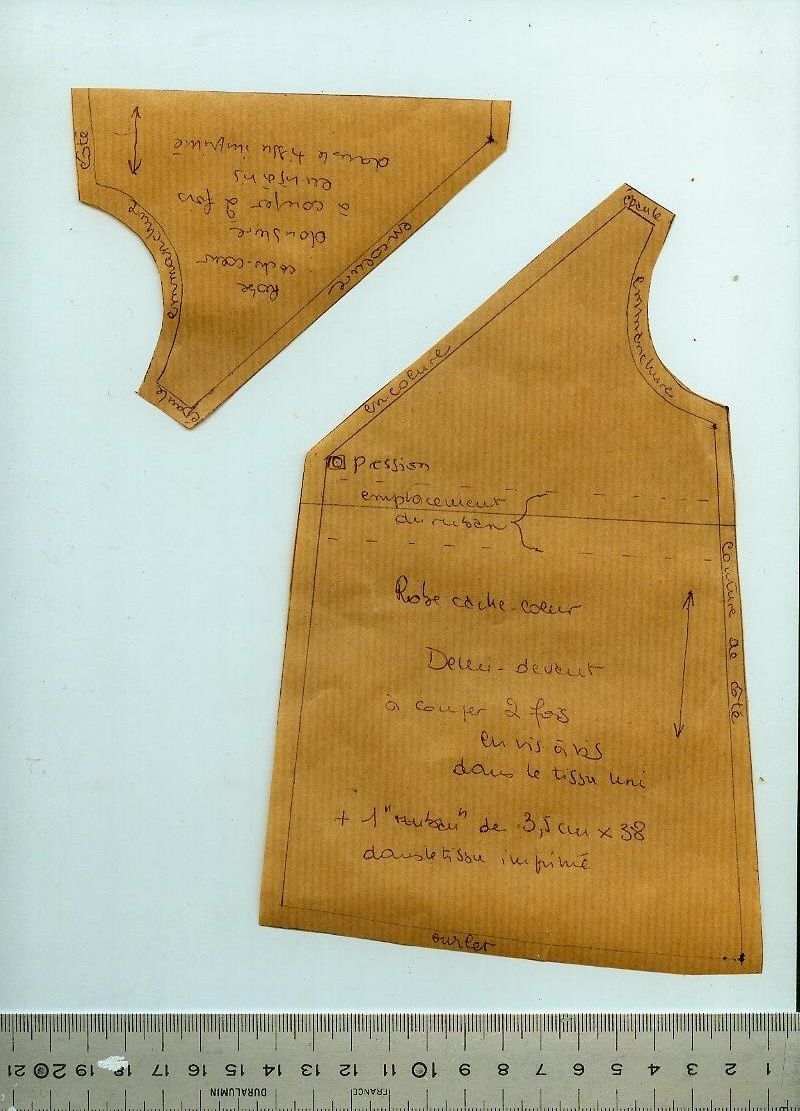 côté
emmanchure
épaule
encolure
Robe
cache-coeur
doublure
à couper 2 fois
en vis à vis
dans le tissu imprimé
épaule
encolure
emmanchure
pression
emplacement
du ruban
couture de côté
Robe cache-coeur
Demi-devant
à couper 2 fois
en vis à vis
dans le tissu uni
+ 1 "ruban" de 3,5 cm x 38
dans le tissu imprimé
ourlet
1 2 3 4 5 6 7 8 9 10 11 12 13 14 15 16 17 18 19 20 21
FRANCE
DURALUMIN